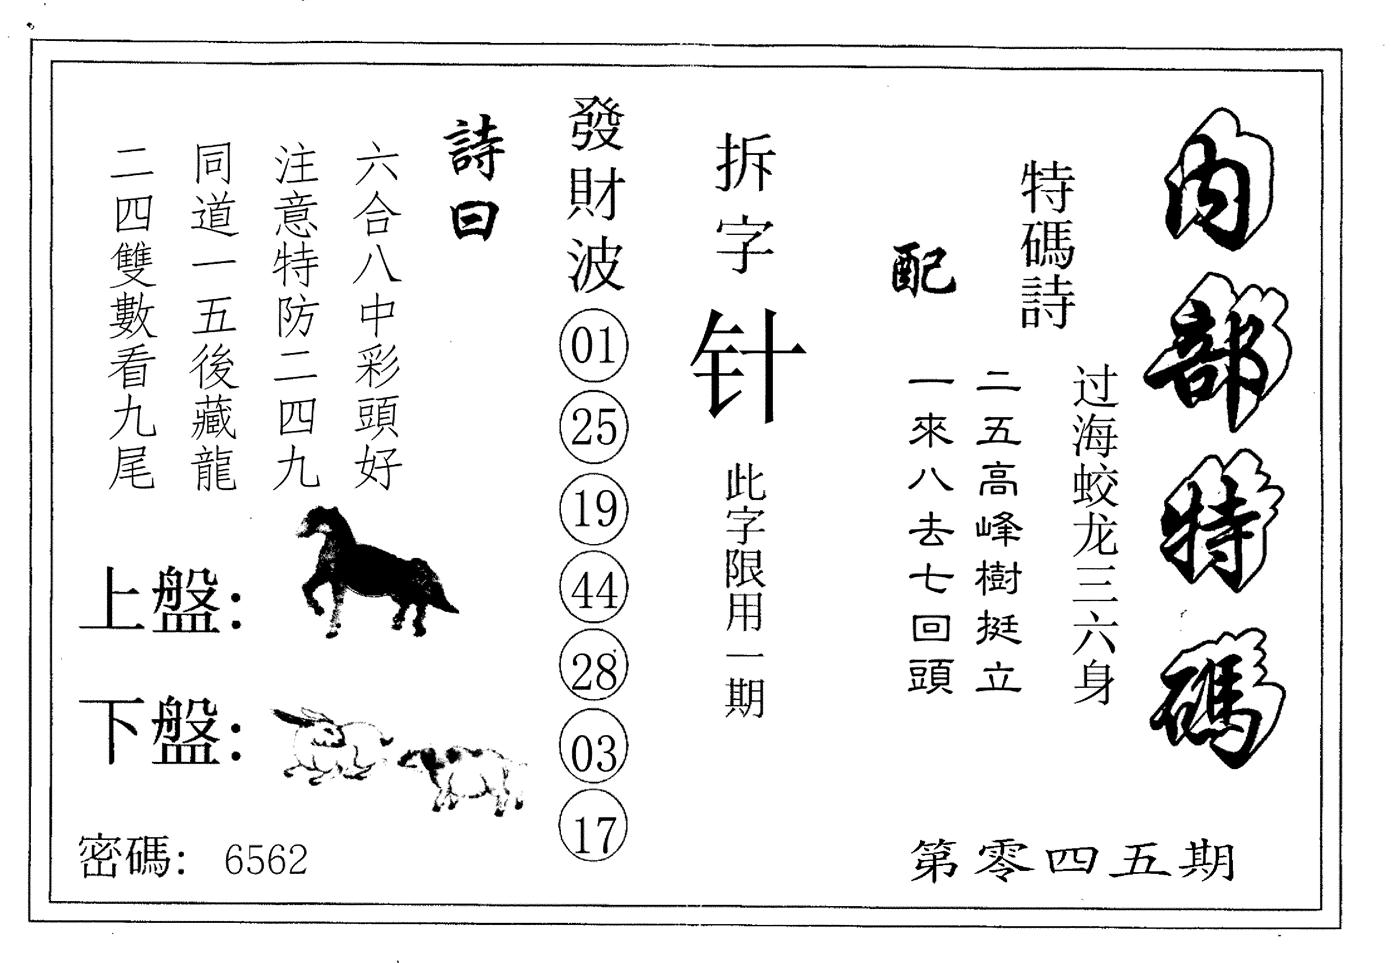 内部特碼
特碼詩
过海蛟龙三六身
配
二五高峰樹挺立
一來八去七回頭
第零四五期
拆字
针
此字限用一期
發財波
01
25
19
44
28
03
17
詩曰
六合八中彩頭好
注意特防二四九
同道一五後藏龍
二四雙數看九尾
上盤：
下盤：
密碼： 6562